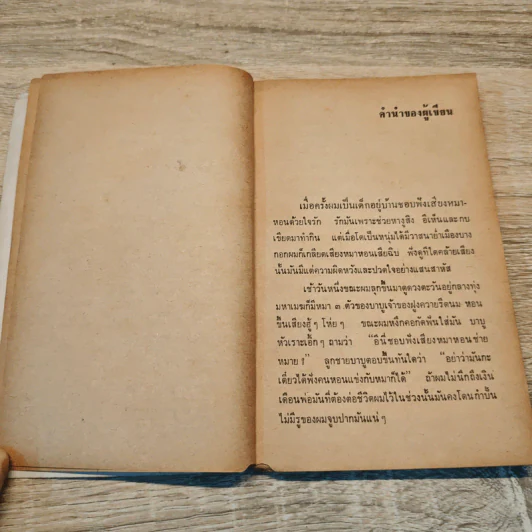 คำนำของผู้เขียน
เมื่อครั้งผมเป็นเด็กอยู่บ้านชอบฟังเสียงหมา-
หอนด้วยใจรัก รักมันเพราะช่วยหางูสิง อีเห็นและกบ
เขียดมาทำกิน แต่เมื่อโตเป็นหนุ่มได้มีวาสนาย่ำเมืองบาง
กอกผมก็เกลียดเสียงหมาหอนเสียฉิบ ฟังดูทีใดคล้ายเสียง
นั้นมันมีแต่ความผิดหวังและปวดใจอย่างแสนสาหัส
เช้าวันหนึ่งขณะผมลุกขึ้นมาดูดวงตะวันอยู่กลางทุ่ง
มหาเมฆก็มีหมา ๓ ตัวของบาบูเจ้าของฝูงควายรีดนม หอน
ขึ้นเสียงอู้ ๆ โห่ย ๆ ขณะผมหงึกคอกัดฟันใส่มัน บาบู
หัวเราะเอิ้ก ๆ ถามว่า “อีนี่ชอบฟังเสียงหมาหอนช่าย
หมาย ?” ลูกชายบาบูตอบขึ้นทันใดว่า “อย่าว่ามันกะ
เดี๋ยวได้ฟังคนหอนแข่งกับหมาก็ได้” ถ้าผมไม่นึกถึงเงิน
เดือนพ่อมันที่ต้องต่อชีวิตผมไว้ในช่วงนั้นมันคงโดนกำปั้น
ไม่มีรูของผมจูบปากมันแน่ ๆ